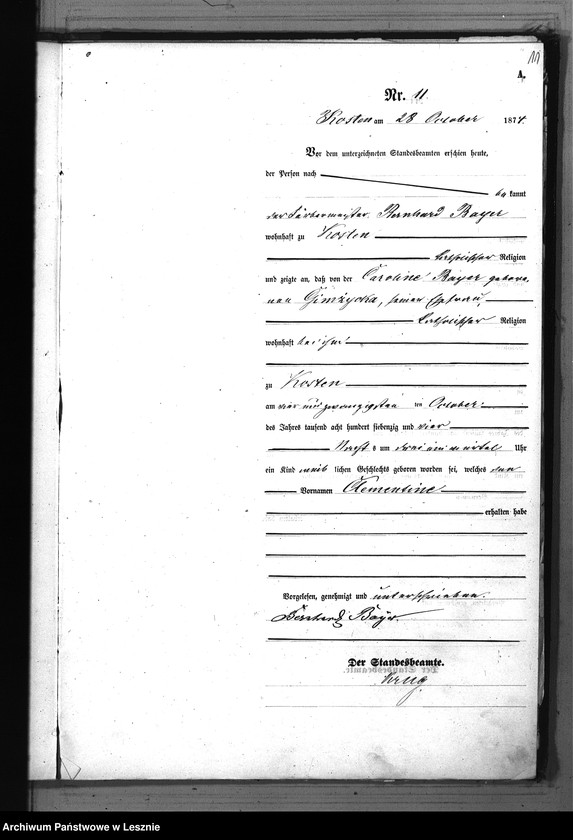 111
A.
Nr. 11
Kosten am 28 October 1874.
Vor dem unterzeichneten Standesbeamten erschien heute,
der Person nach
be kannt
der Färbermeister Bernhard Bayer
wohnhaft zu Kosten
katholischer Religion
und zeigte an, daß von der Caroline Bayer gebore
nen seiner Ehefrau,
katholischer Religion
wohnhaft bei ihm
zu Kosten
am vier und zwanzigsten ten October
des Jahres tausend acht hundert siebenzig und vier
Nachts um drei ein viertel Uhr
ein Kind weib lichen Geschlechts geboren worden sei, welches den
Vornamen Clementine
erhalten habe
Vorgelesen, genehmigt und unterschrieben.
Bernhard Bayer.
Der Standesbeamte.
Archiwum Państwowe w Lesznie